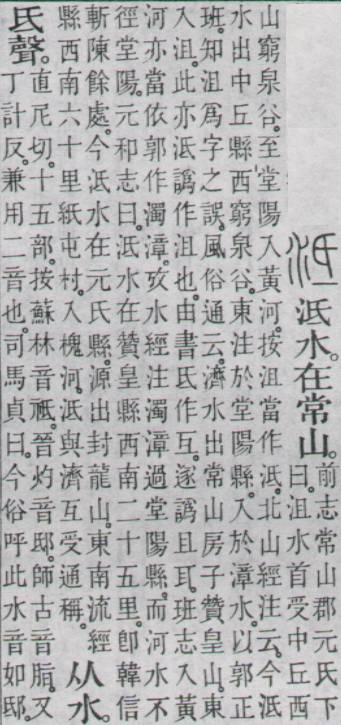 泜
泜水。在常山。
前志常山郡元氏下
曰。沮水首受中丘西
山窮泉谷。至堂陽入黃河。按沮當作泜。北山經注云。今泜
水出中丘縣西窮泉谷。東注於堂陽縣。入於漳水。以郭正
班。知沮爲字之誤。風俗通云。濟水出常山房子贊皇山。東
入沮。此亦泜譌作沮也。由書氐作互。遂譌且耳。班志入黃
河。亦當依郭作濁漳。攷水經注濁漳過堂陽縣。而河水不
徑堂陽。元和志曰。泜水在贊皇縣西南二十五里。卽韓信
斬陳餘處。今泜水在元氏縣。源出封龍山。東南流經
縣西南六十里紙屯村。入槐河。泜與濟互受通稱。
从水。
氐聲。
直尼切。十五部。按蘇林音祗。晉灼音邸。師古音脂。又
丁計反。兼用二音也。司馬貞曰。今俗呼此水音如邸。